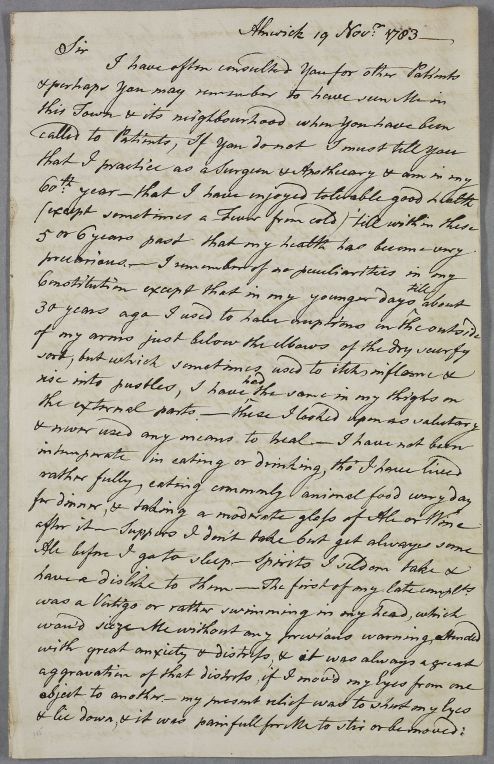 Alnwick 19 Novr. 1783
Sir
I have often consulted You for other Patients
& perhaps You may remember to have seen Me in
this Town & its neighbourhood when You have been
called to Patients, If You do not I must tell You
that I practice as a Surgeon & Apothecary & am in my
60th. year — that I have enjoyed tolerable good health
(except sometimes a Fever from cold) till within these
5 or 6 years past that my health has become very
precarious. — I remember of no peculiarities in my
Constitution except that in my younger days till about
30 years ago I used to have eruptions on the outside
of my arms just below the elbows of the dry scurfy
sort, but which sometimes used to itch, inflame &
rise into pustles, I have had the same in my thighs on
the external parts. — these I looked upon as salutary
& never used any means to heal. — I have not been
intemperate in eating or drinking, tho' I have lived
rather fully, eating commonly animal food every day
for dinner, & taking a moderate glass of Ale or Wine
after it — Suppers I don't take but get always some
Ale before I go to sleep — Spirits I seldom take &
have a dislike to them — The first of my late complts
was a Vertigo or rather swimming in my head, which
wou'd seize Me without any previous warning, attended
with great anxiety & distress, & it was always a great
aggravation of that distress, if I mov'd my Eyes from one
object to another. — my present relief was to shut my Eyes
& lie down, & it was painfull for Me to stir or be moved: